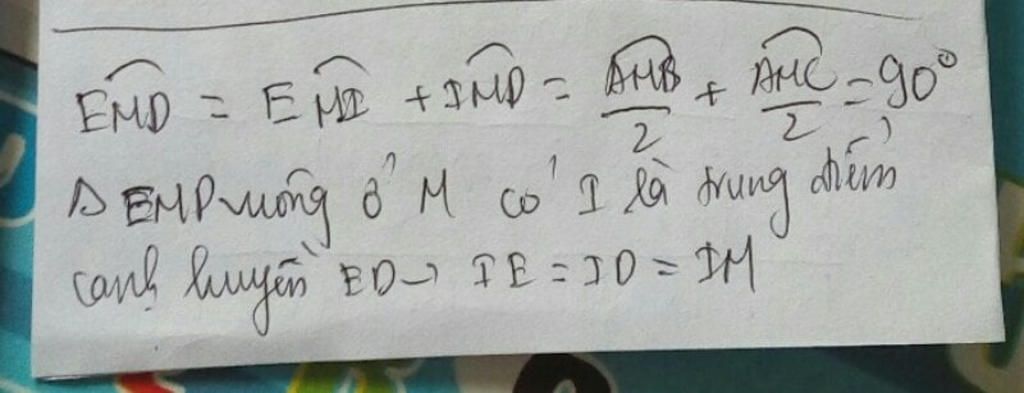 EMD = EMI + IMD = AMB/2 + AMC/2 = 90°
Δ EMD vuông ở M có I là trung điểm
cạnh huyền ED → IE = ID = IM